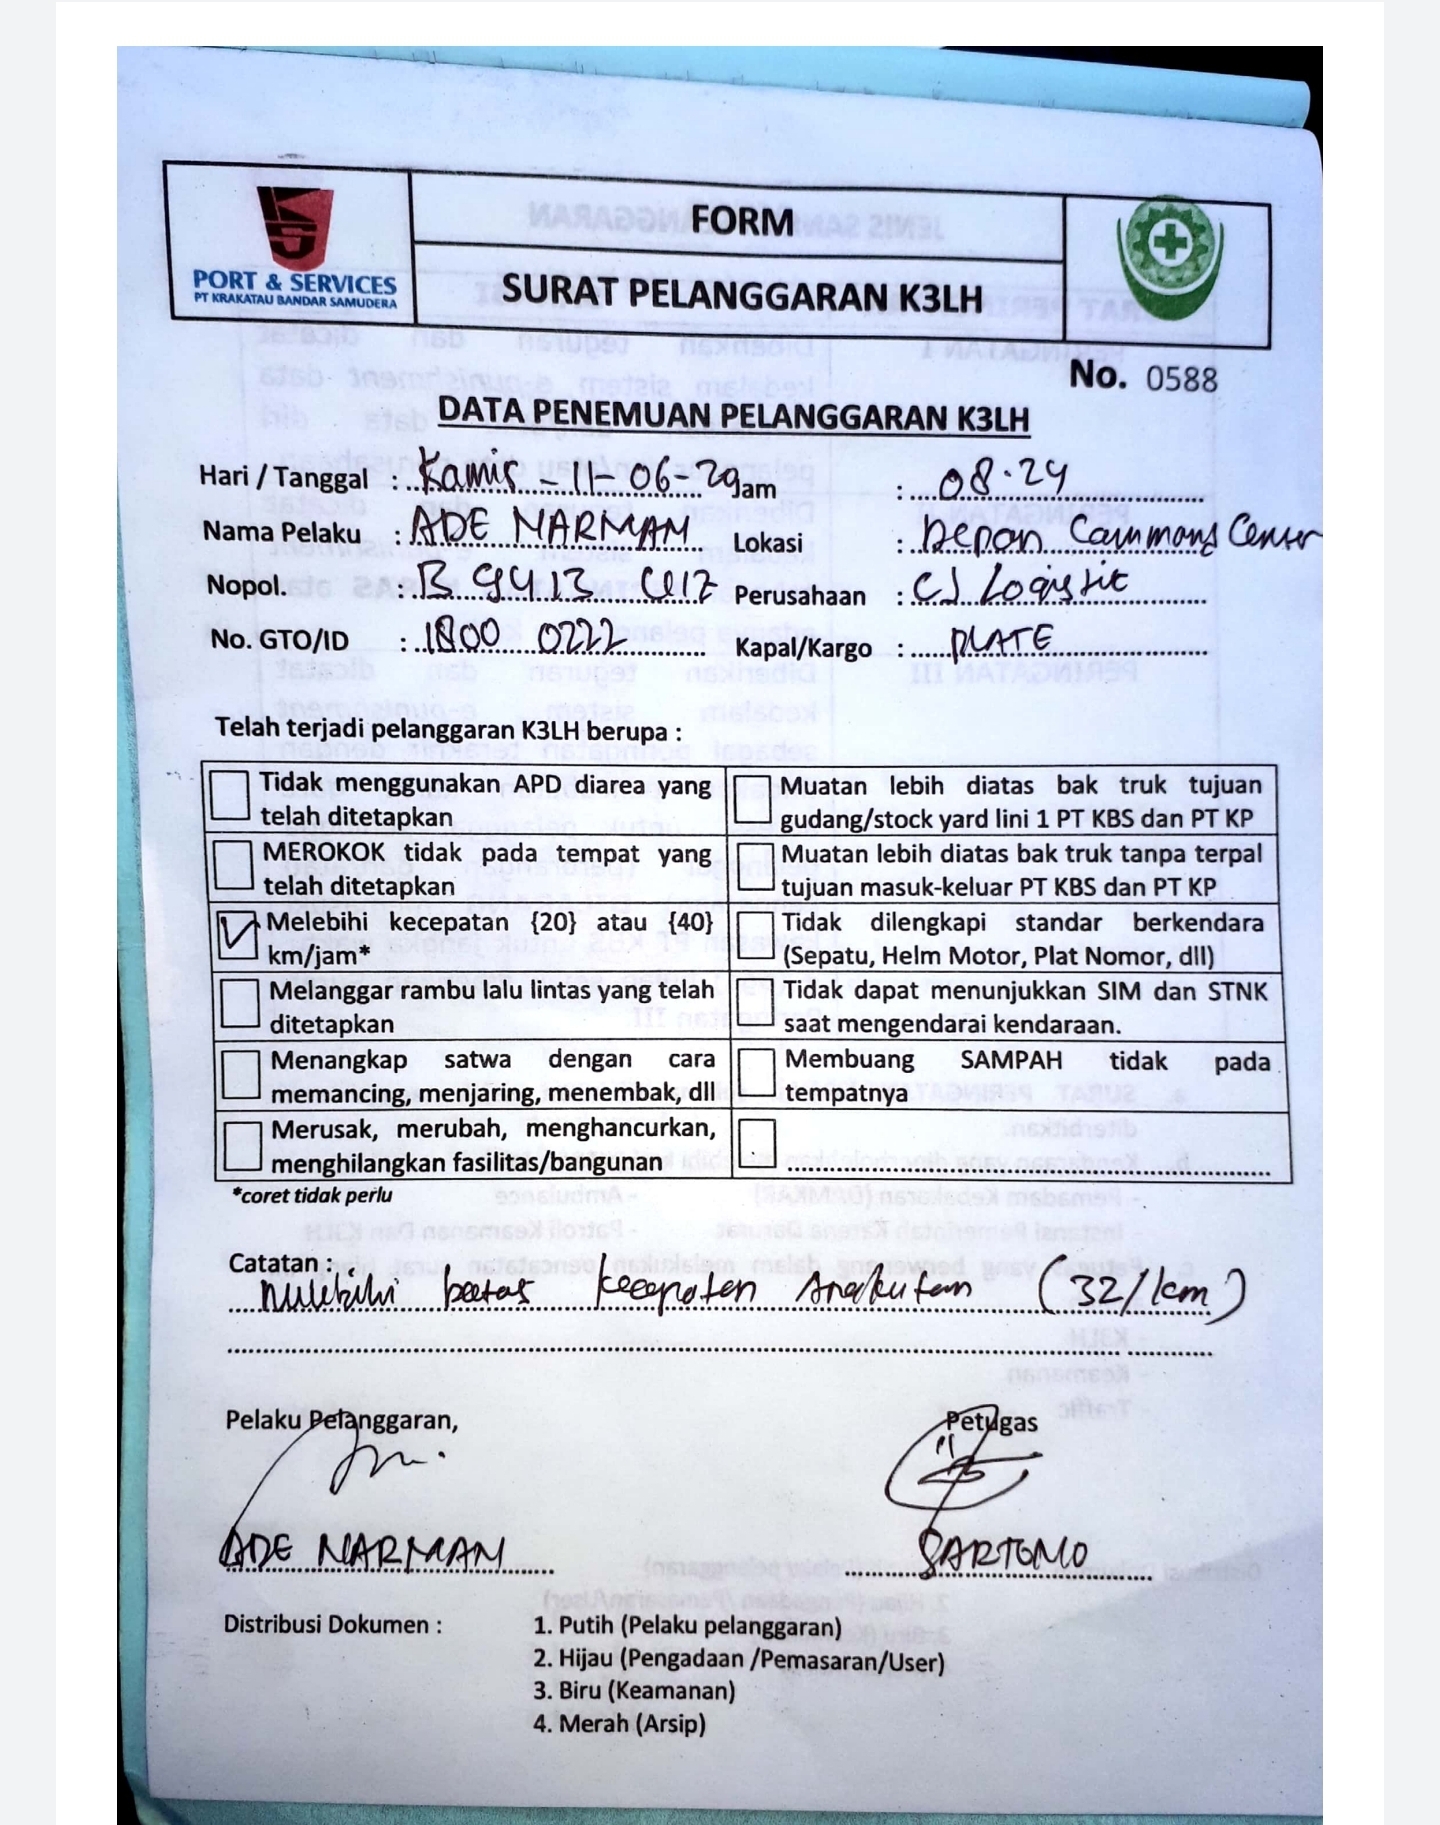 PORT & SERVICES
PT KRAKATAU BANDAR SAMUDERA
FORM
SURAT PELANGGARAN K3LH
No. 0588
DATA PENEMUAN PELANGGARAN K3LH
Hari / Tanggal : Kamis - 11 - 06 - Jam : 08.24
Nama Pelaku : ADE NARMAN Lokasi : Depan Command Center
Nopol. : B 9413 Perusahaan : CJ Logistic
No. GTO/ID : 1800 0222 Kapal/Kargo : PLATE
Telah terjadi pelanggaran K3LH berupa :
Tidak menggunakan APD diarea yang telah ditetapkan
Muatan lebih diatas bak truk tujuan gudang/stock yard lini 1 PT KBS dan PT KP
MEROKOK tidak pada tempat yang telah ditetapkan
Muatan lebih diatas bak truk tanpa terpal tujuan masuk-keluar PT KBS dan PT KP
Melebihi kecepatan {20} atau {40} km/jam*
Tidak dilengkapi standar berkendara (Sepatu, Helm Motor, Plat Nomor, dll)
Melanggar rambu lalu lintas yang telah ditetapkan
Tidak dapat menunjukkan SIM dan STNK saat mengendarai kendaraan.
Menangkap satwa dengan cara memancing, menjaring, menembak, dll
Membuang SAMPAH tidak pada tempatnya
Merusak, merubah, menghancurkan, menghilangkan fasilitas/bangunan
*coret tidak perlu
Catatan :
Melebihi batas kecepatan angkutan (32/km)
Pelaku Pelanggaran, Petugas
ADE NARMAN SARTONO
Distribusi Dokumen : 1. Putih (Pelaku pelanggaran)
2. Hijau (Pengadaan /Pemasaran/User)
3. Biru (Keamanan)
4. Merah (Arsip)